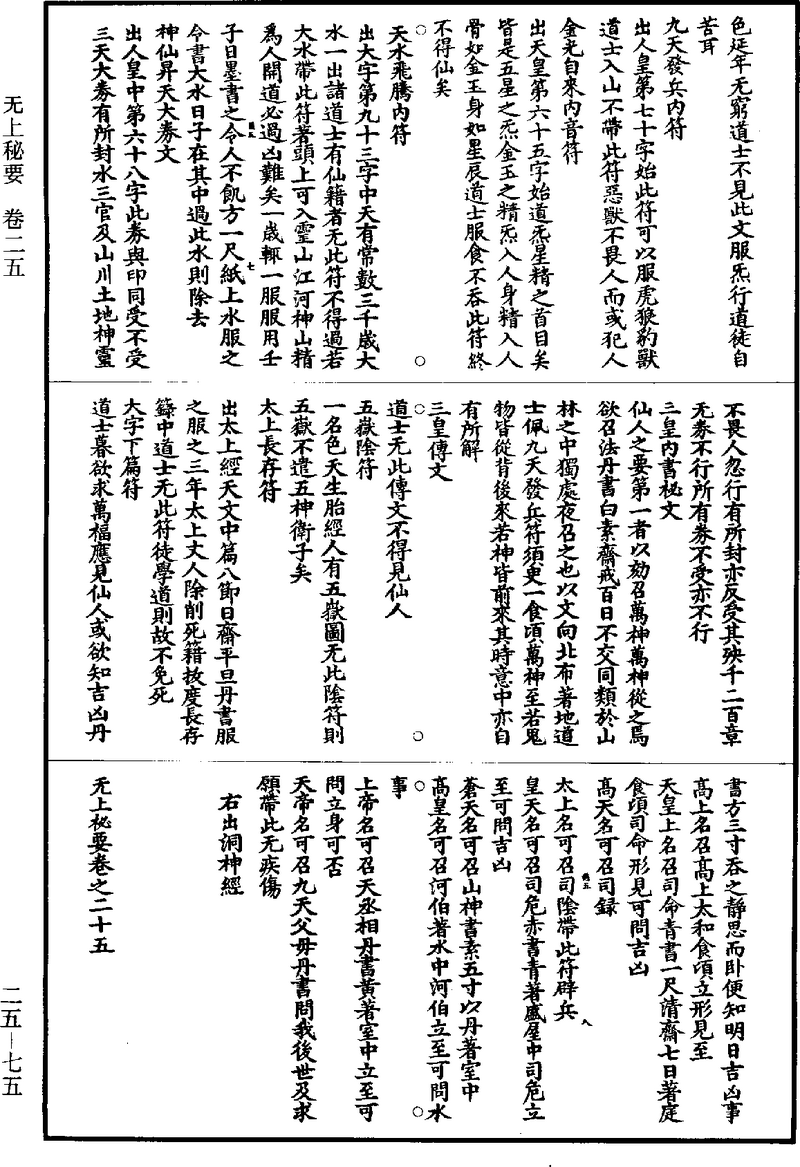 色延年无窮道士不見此文服炁行道徒自
苦耳
九天發兵內符
出人皇第七十字始此符可以服虎狼豹獸
道士入山不帶此符惡獸不畏人而或犯人
金光自來內音符
出天皇第六十五字始道炁星精之首目矣
皆是五星之炁金玉之精炁入人身精入人
骨如金玉身如星辰道士服食不吞此符終
不得仙矣
天水飛騰內符
出大字第九十三字中天有常數三千歲大
水一出諸道士有仙籍者无此符不得過若
大水帶此符著頭上可入靈山江河神山精
爲人開道必過凶難矣一歲輒一服服用壬
子日墨書之令人不飢方一尺紙上水服之
七
令書大水日子在其中過此水則除去
神仙昇天大券文
出人皇中第六十八字此券與印同受不受
三天大券有所封水三官及山川土地神靈
不畏人忽行有所封亦反受其殃千二百章
无券不行所有券不受亦不行
三皇內書秘文
仙人之要第一者以劾召萬神萬神從之焉
欲召法丹書白素齋戒百日不交同類於山
林之中獨處夜召之也以文向北布著地道
士佩九天發兵符須臾一食頃萬神至若鬼
物皆從背後來若神皆前來其時意中亦自
有所解
三皇傳文
道士无此傳文不得見仙人
五嶽陰符
一名色天生胎經人有五嶽圖无此陰符則
五嶽不遣五神衛子矣
太上長存符
出太上經天文中篇八節日齋平旦丹書服
之服之三年太上丈人除削死籍拔度長存
籙中道士无此符徒學道則故不免死
大字下篇符
道士暮欲求萬福應見仙人或欲知吉凶丹
書方三寸吞之靜思而卧便知明日吉凶事
高上名召高上太和食頃立形見至
天皇上名召司命青書一尺清齋七日著庭
食頃司命形見可問吉凶
高天名可召司録
太上名可召司陰帶此符辟兵
八
皇天名可召司危赤書青著盛屋中司危立
至可問吉凶
蒼天名可召山神書素五寸以丹著室中
高皇名可召河伯著水中河伯立至可問水
事
上帝名可召天丞相丹書黃著室中立至可
問立身可否
天帝名可召九天父母丹書問我後世及求
願帶此无疾傷
右出洞神經
无上秘要卷之二十五
无上秘要 卷二五
二五—七五